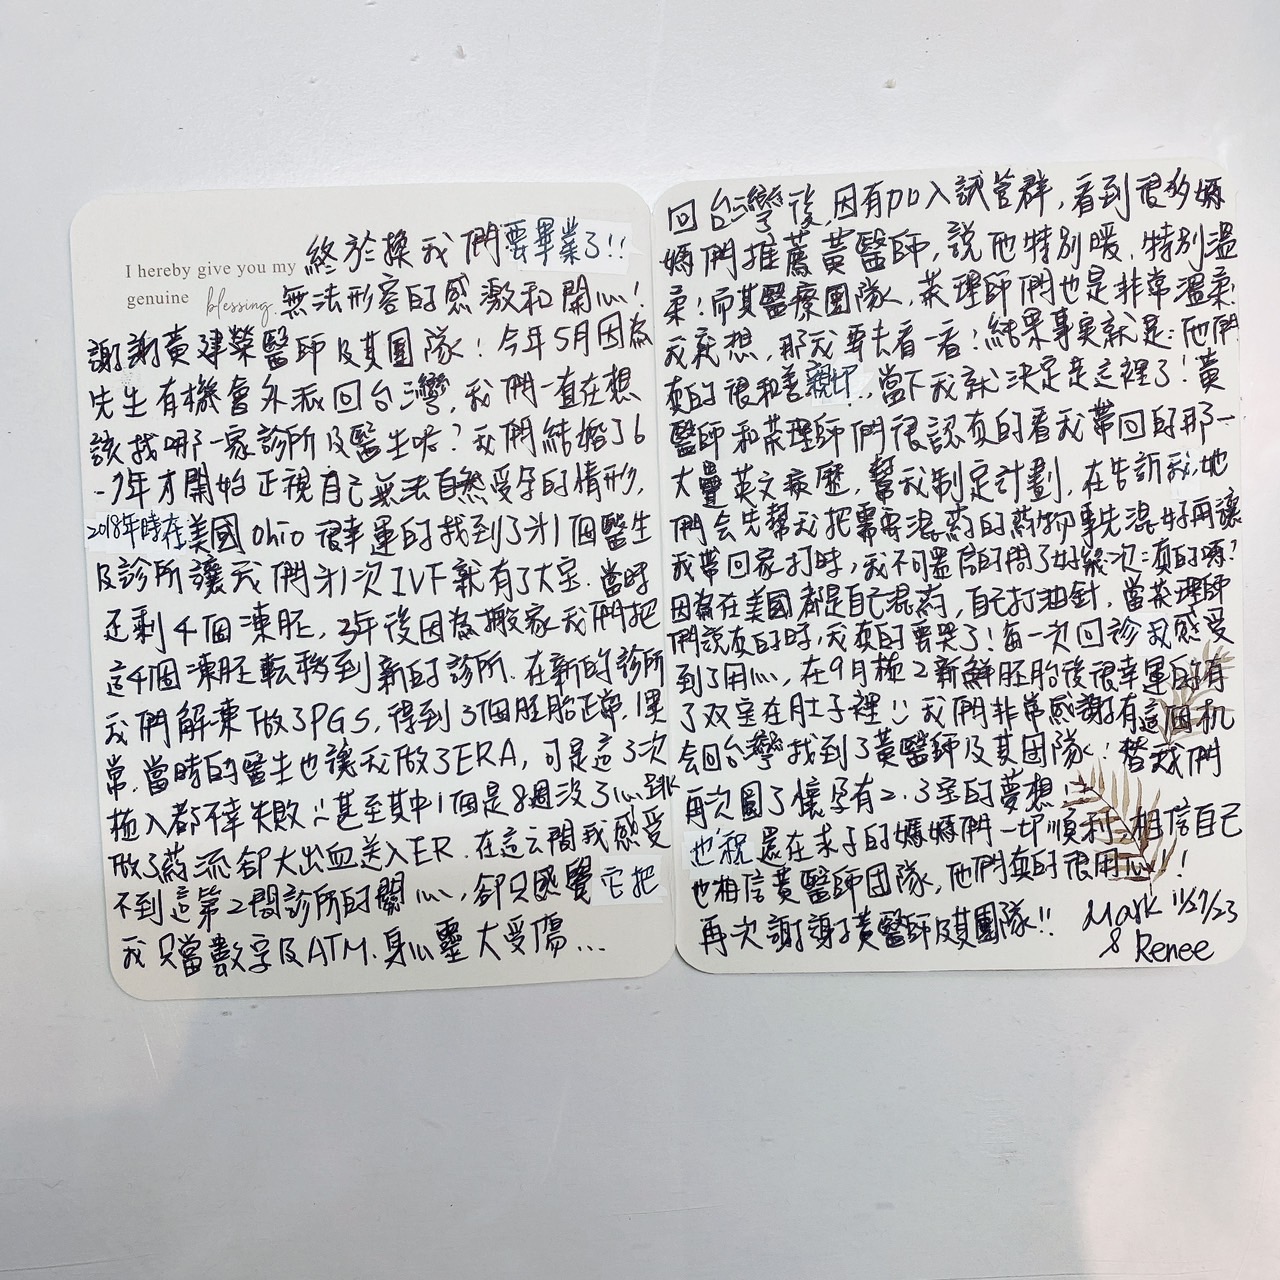 I hereby give you my
genuine blessing.
終於換我們要畢業了!!
無法形容的感激和開心!
謝謝黃建榮醫師及其團隊!今年5月因為
先生有機會外派回台灣,我們一直在想
該找哪一家診所及醫生呢?我們結婚了6
-7年才開始正視自己無法自然受孕的情形,
2018年時在美國Ohio很幸運的找到了第1個醫生
及診所讓我們第1次IVF就有了大宝.當時
还剩4個凍胚,3年後因為搬家我們把
這4個凍胚転移到新的診所.在新的診所
我們解凍做了PGS,得到3個胚胎正常,1異
常.當時的醫生也讓我做了ERA,可是這3次
植入都不幸失敗::甚至其中1個是8週没了心跳
做了药流卻大出血送入ER.在這之間我感受
不到這第2間診所的關心,卻只感覺它把
我只當數字及ATM.身心靈大受傷...
回台灣後,因有加入試管群,看到很多媽
媽們推薦黃醫師,說他特別暖,特別溫
柔!而其醫療團隊,茶理師們也是非常溫柔!
我就想,那我要去看一看!結果事实就是:他們
真的很和善親切,當下我就決定是这裡了!黃
醫師和茶理師們很認真的看我帶回的那一
大疊英文病歷,幫我制定計劃,在告訴我,她
們会先幫我把需要混药的药物事先混好再讓
我帶回家打時,我不可置信的問了好幾次:真的嗎?
因為在美國都是自己混药,自己打油針,當茶理師
們說真的時,我真的要哭了!每一次回診我感受
到了用心,在9月植2新鮮胚胎後很幸運的有
了双宝在肚子裡!!我們非常感謝有這個机
会回台灣找到了黃醫師及其团隊!替我們
再次圓了懷孕有2.3宝的夢想!
也祝還在求子的媽媽們一切順利,相信自己
也相信黃醫師团隊,他們真的很用心!
再次謝謝黃醫師及其團隊!!
Mark 11/27/23
& Renee